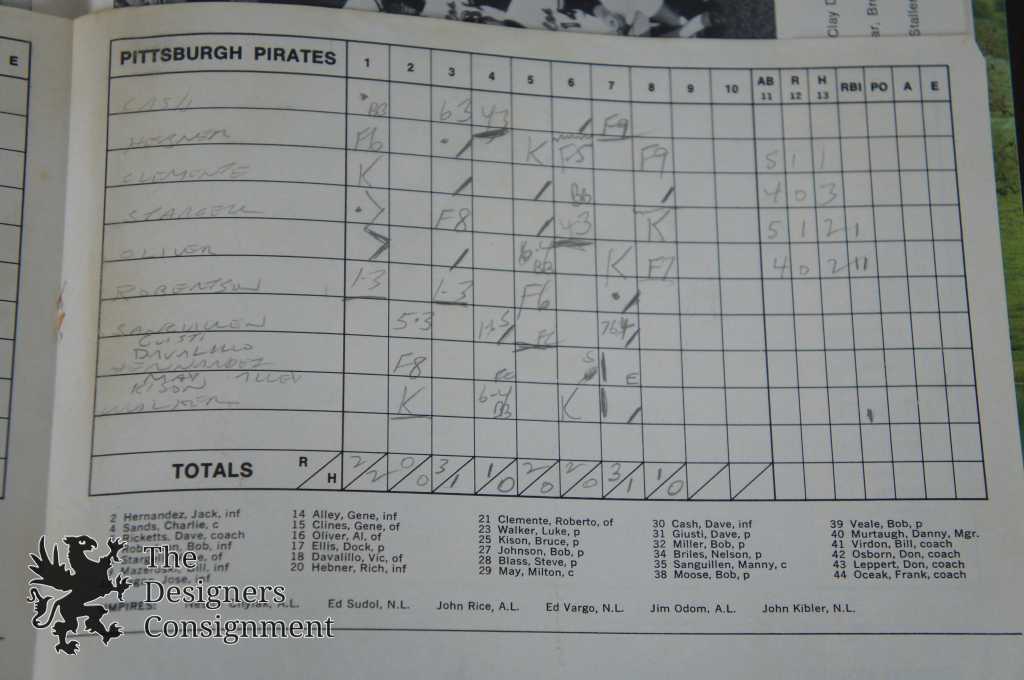 Clay
ar, Br
Staller
E
PITTSBURGH PIRATES 1 2 3 4 5 6 7 8 9 10 AB 11 R 12 H 13 RBI PO A E
CASH BB 63 43 F9
HEBNER F6 K F5 F9 5 1 1
CLEMENTE K BB 4 0 3
STARGELL F8 43 K 5 1 2 1
OLIVER BB K F7 4 0 2 11
ROBERTSON 1-3 1-3 F6
SANGUILLEN 5-3
GUSTI
DAVALILLO
HERNNANDEZ F8 E
MAY ALLEY
KISON K 6-4 BB K
WALKER
TOTALS R/H 2/2 0/0 3/1 1/0 2/0 2/0 3/1 1/0
2 Hernandez, Jack, inf
4 Sands, Charlie, c
Ricketts, Dave, coach
Rob, Bob, inf
Star of
Maz ill, inf
Jose, inf
14 Alley, Gene, inf
15 Clines, Gene, of
16 Oliver, Al, of
17 Ellis, Dock, p
18 Davalillo, Vic, of
20 Hebner, Rich, inf
21 Clemente, Roberto, of
23 Walker, Luke, p
25 Kison, Bruce, p
27 Johnson, Bob, p
28 Blass, Steve, p
29 May, Milton, c
30 Cash, Dave, inf
31 Giusti, Dave, p
32 Miller, Bob, p
34 Briles, Nelson, p
35 Sanguillen, Manny, c
38 Moose, Bob, p
39 Veale, Bob, p
40 Murtaugh, Danny, Mgr.
41 Virdon, Bill, coach
42 Osborn, Don, coach
43 Leppert, Don, coach
44 Oceak, Frank, coach
UMPIRES: Chylak, A.L. Ed Sudol, N.L. John Rice, A.L. Ed Vargo, N.L. Jim Odom, A.L. John Kibler, N.L.
The
Designers
Consignment